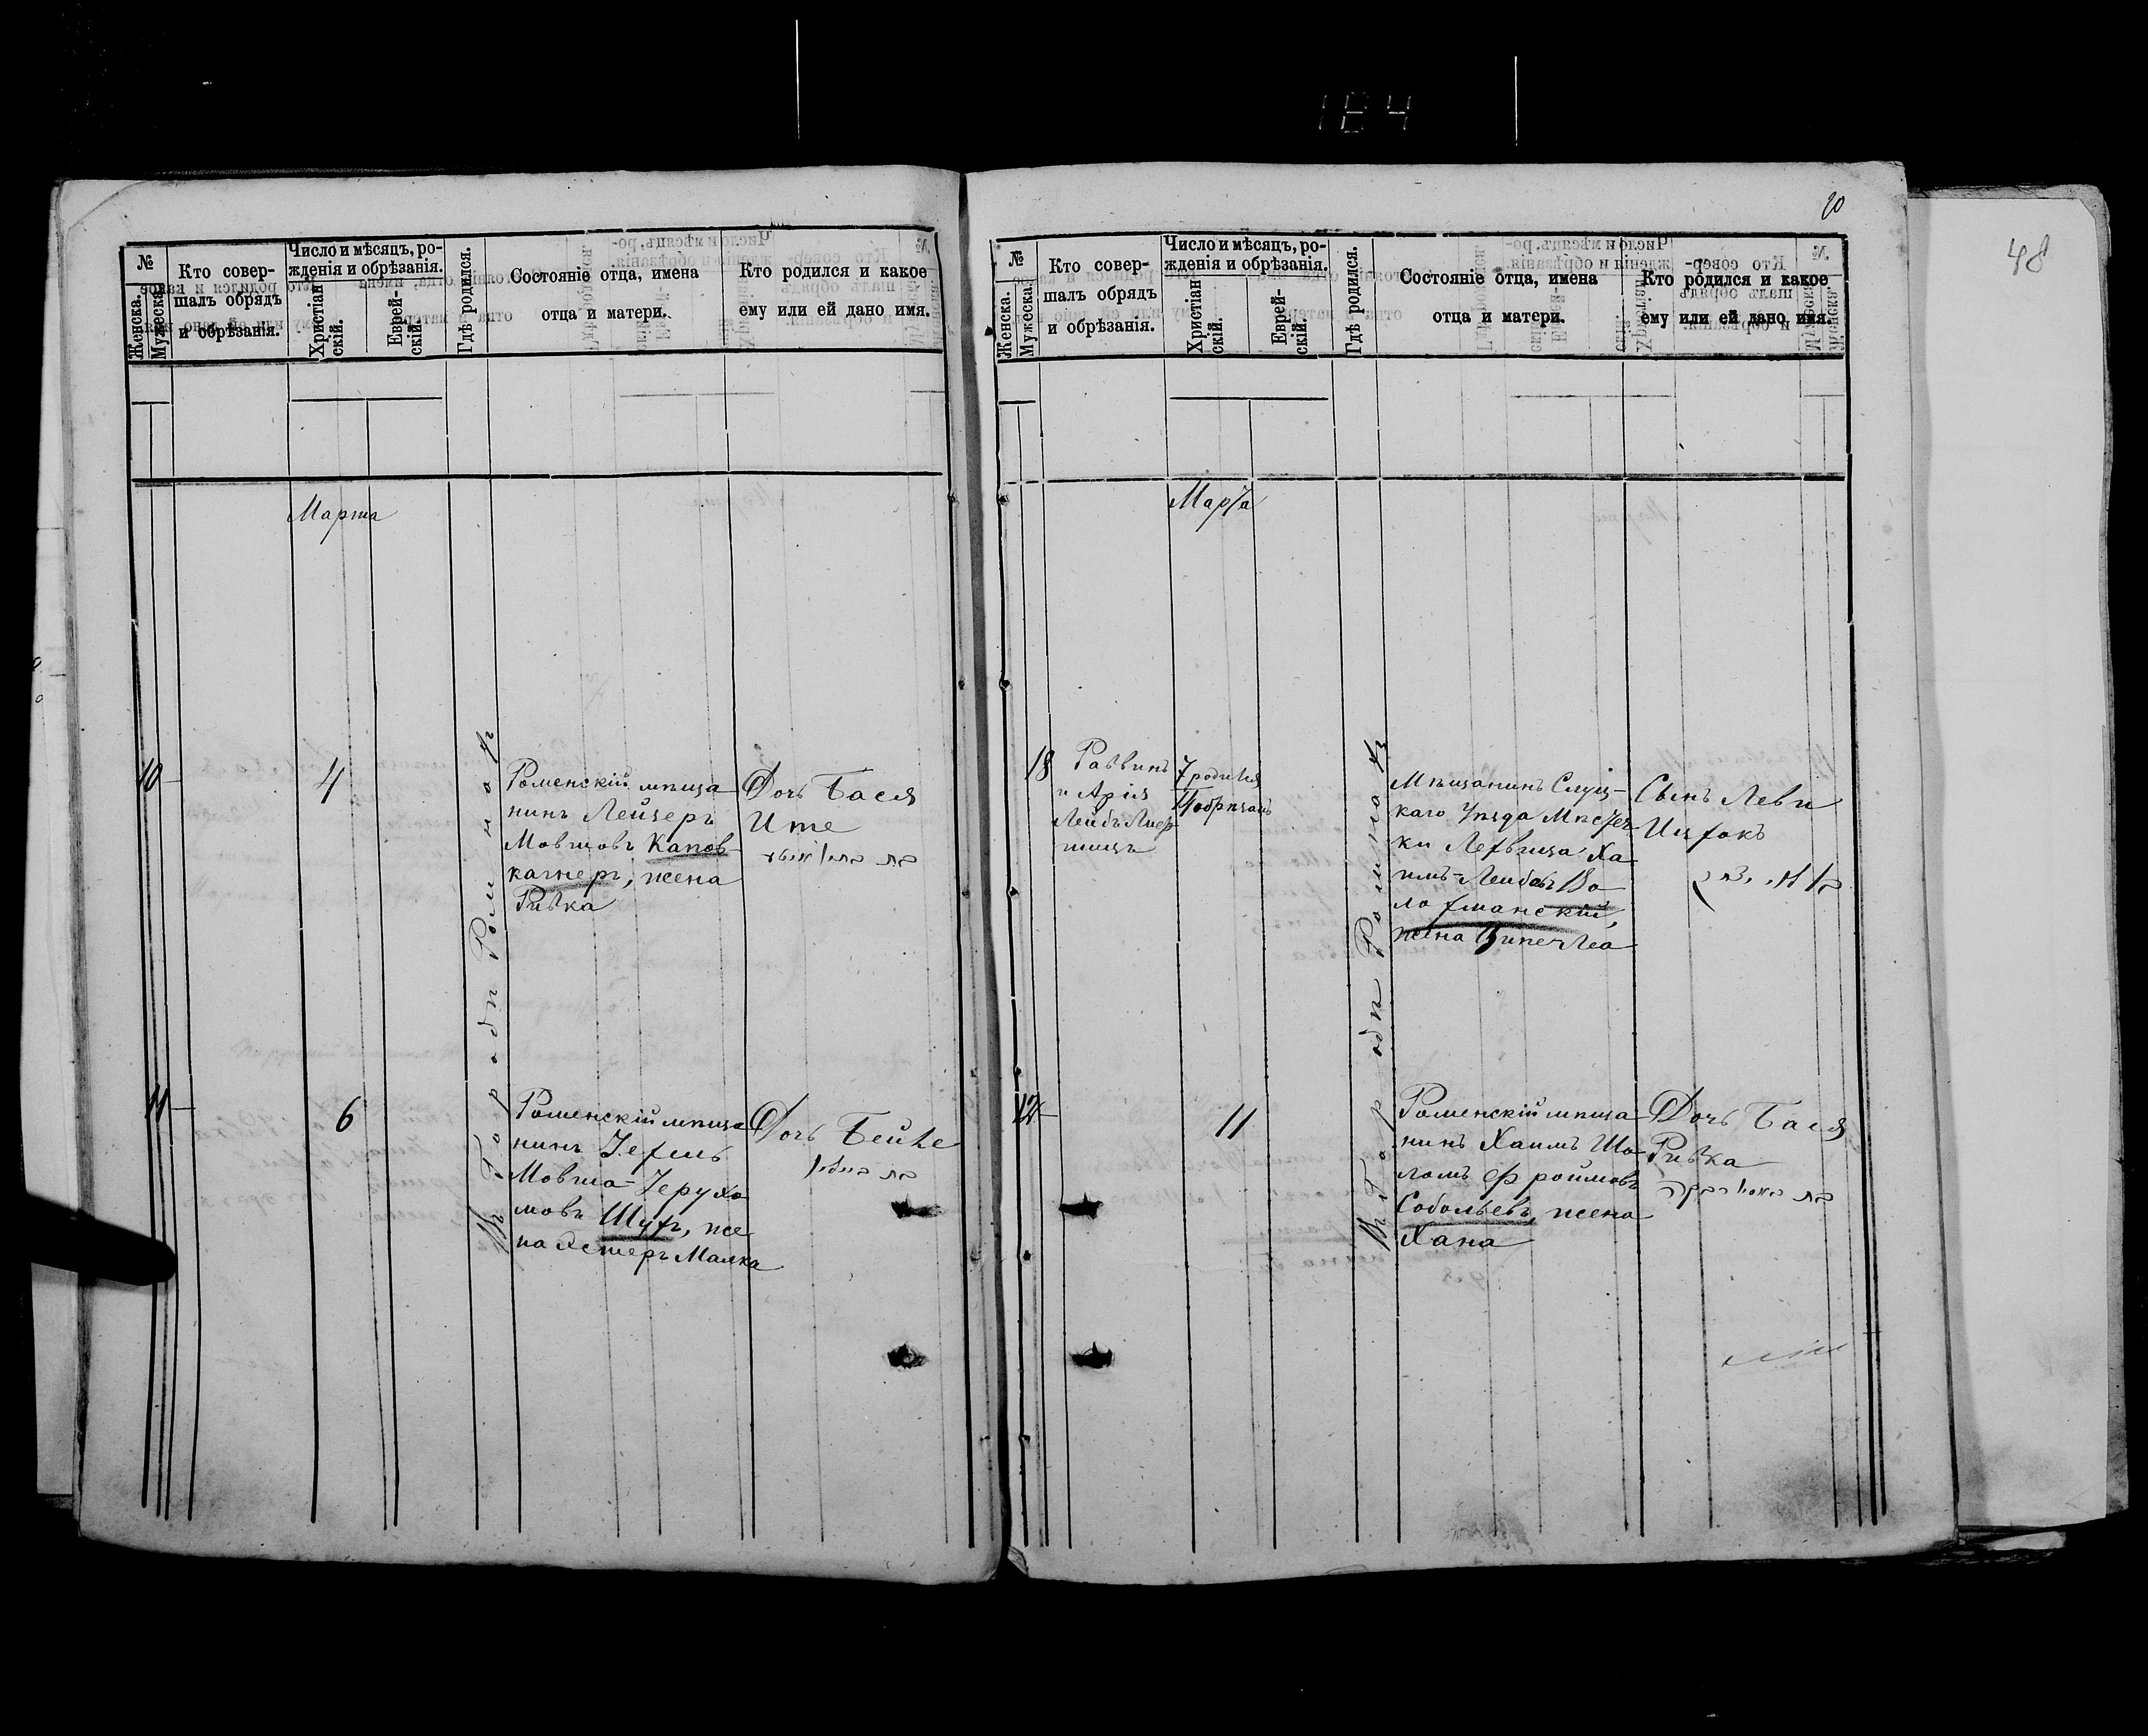 184
20
48
№
Женска.
Мужеска.
Кто совер-
шалъ обрядъ
и обрѣзанія.
Число и мѣсяцъ, ро-
жденія и обрѣзанія.
Христіан-
скій.
Еврей-
скій.
Гдѣ родился.
Состояніе отца, имена
отца и матери.
Кто родился и какое
ему или ей дано имя.
Марта
10
4
Въ Городѣ Ромнахъ
Роменскій мѣща
нинъ Лейзеръ
Мовшовъ Капов
качнеръ, жена
Ривка
Дочь Бася
Ите
11
6
Роменскій мѣща
нинъ
Мовша-Іерухо
мовъ Шуфъ, же
на Эстеръ Малка
Дочь Бейле
№
Женска.
Мужеска.
Кто совер-
шалъ обрядъ
и обрѣзанія.
Число и мѣсяцъ, ро-
жденія и обрѣзанія.
Христіан-
скій.
Еврей-
скій.
Гдѣ родился.
Состояніе отца, имена
отца и матери.
Кто родился и какое
ему или ей дано имя.
Марта
18
Раввинъ
и Арія
Лейбъ
7 родился
14 обрѣзанъ
Въ Городѣ Ромнахъ
Мѣщанинъ Слуц-
каго Уѣзда Мѣстеч
ки Ха
имъ-Лейбовъ Во
ло
жена
Сынъ Леви
Ицхокъ
12
11
Роменскій мѣща
нинъ Хаимъ Шо
ломъ Фроимовъ
Собольевъ, жена
Хана
Дочь Бася
Ривка